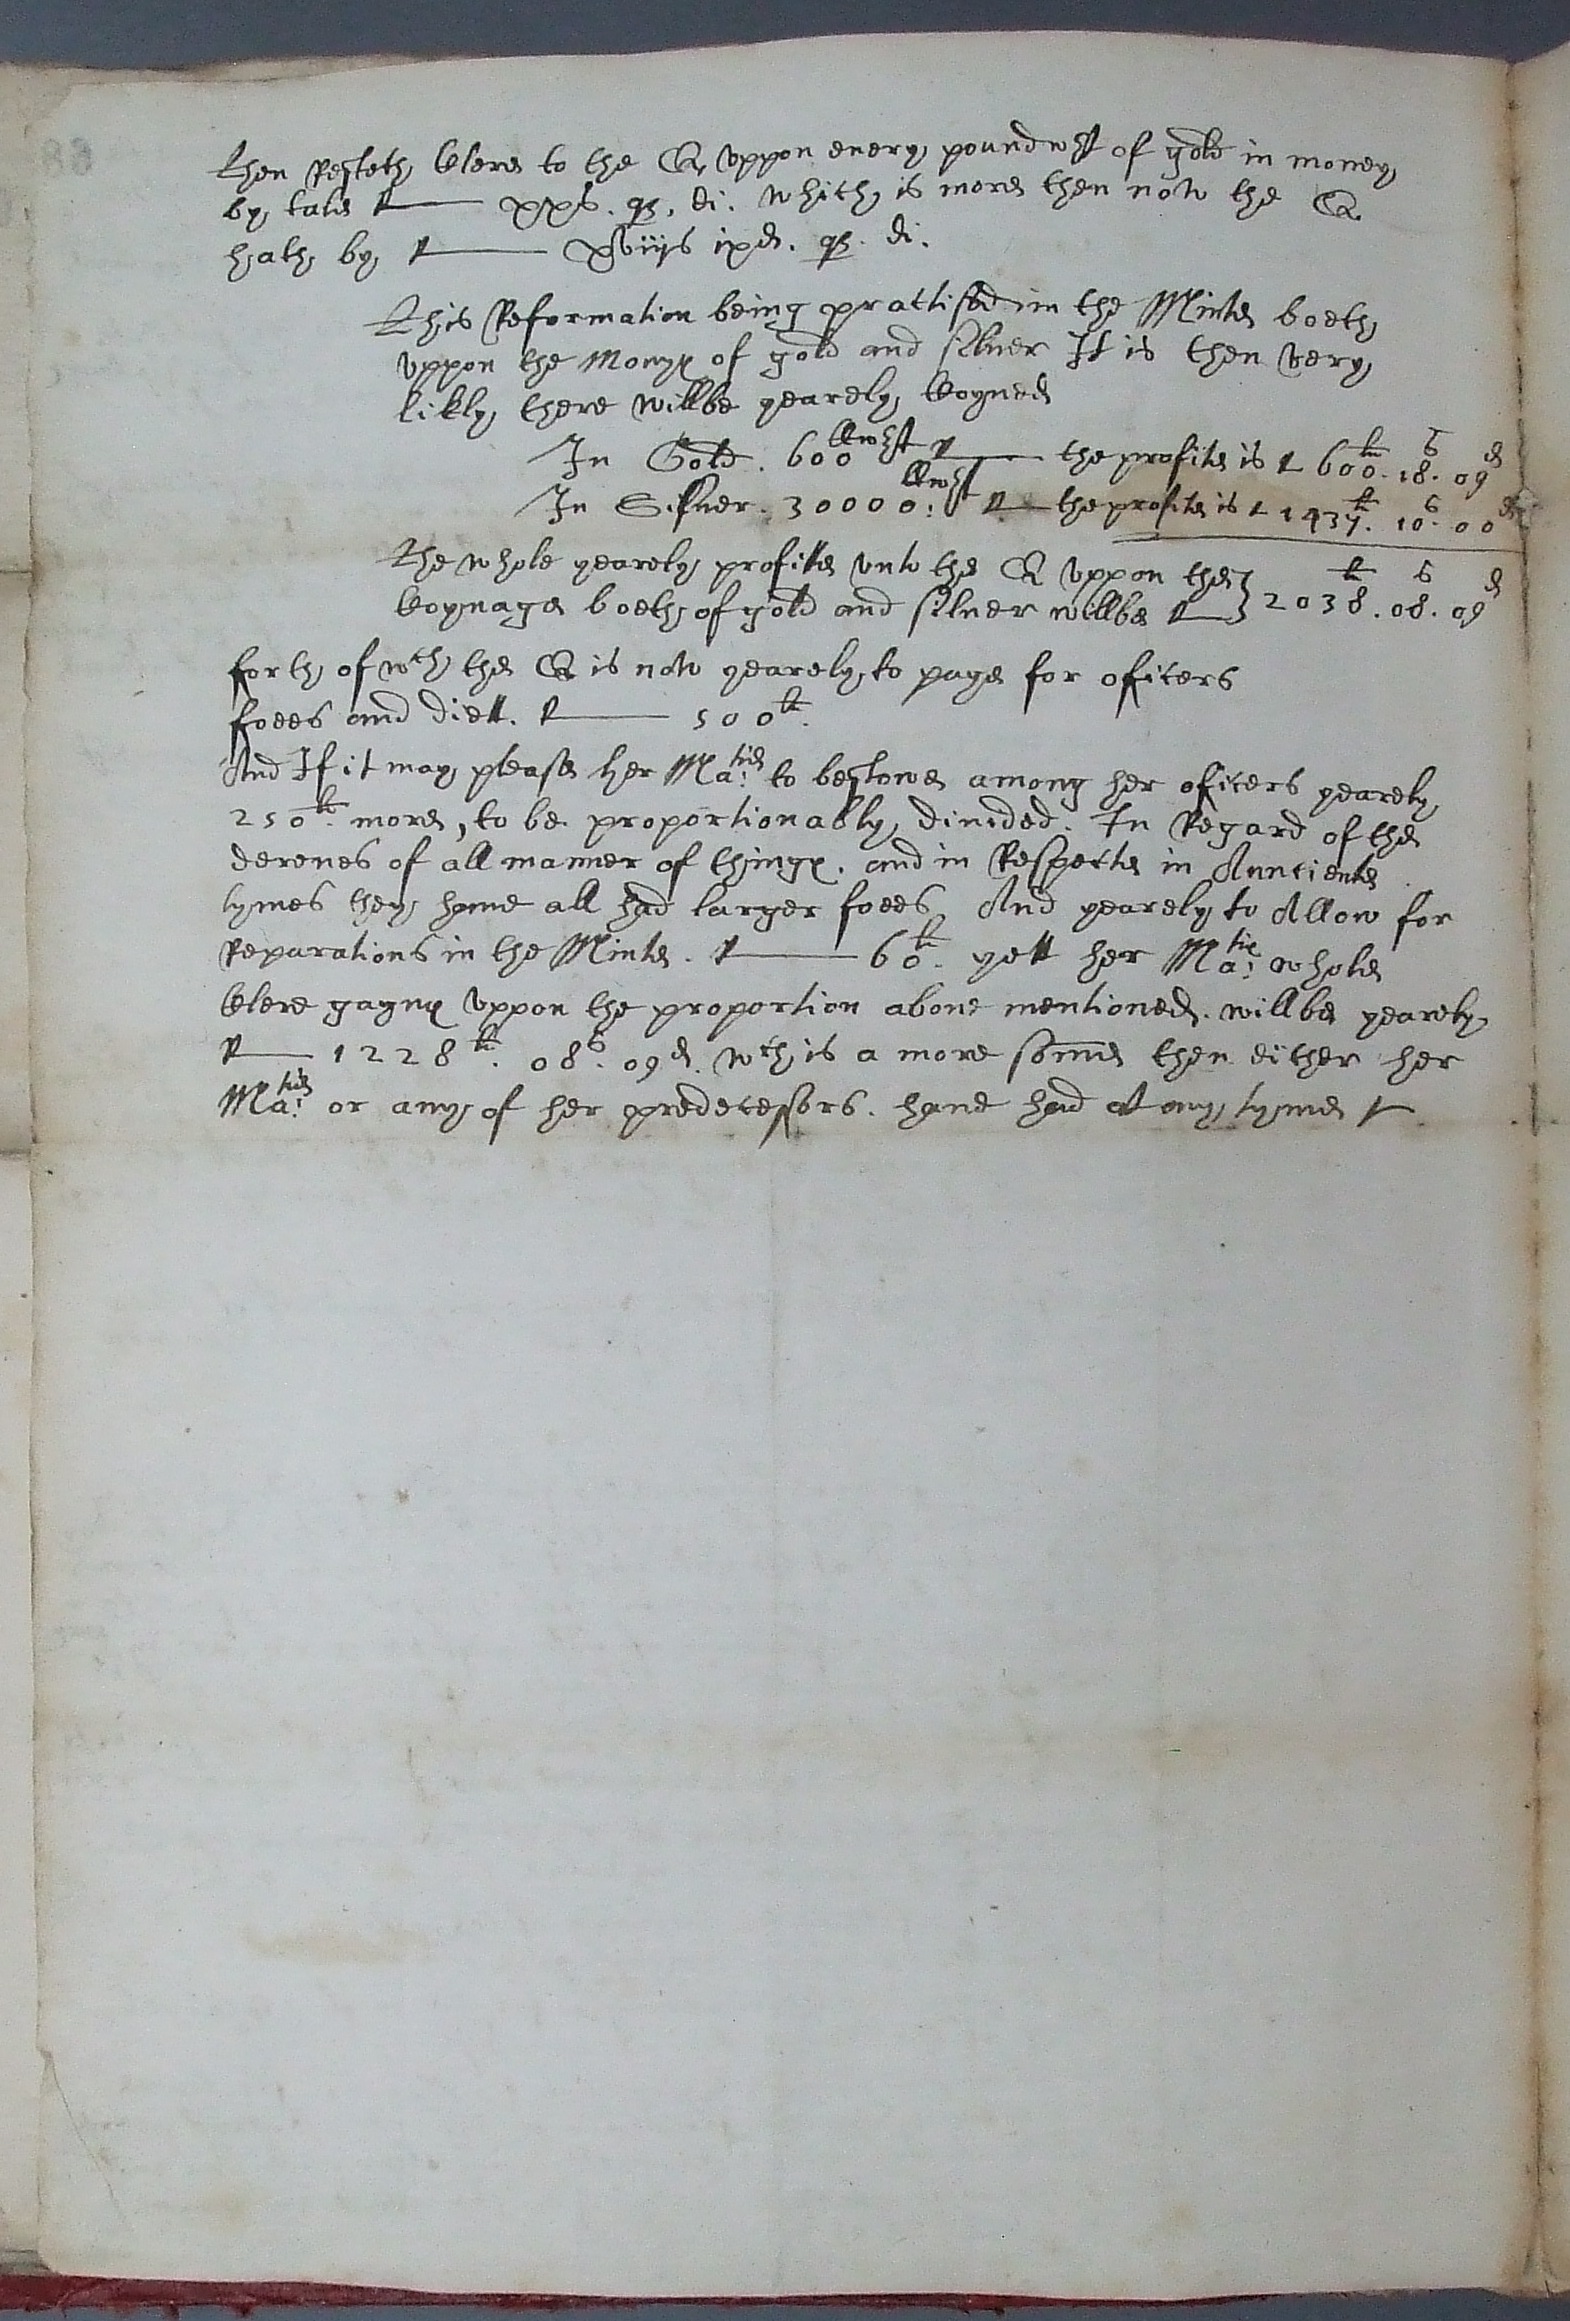 then Resteth clere to the Q. vppon euery poundwght of gold in money
by tale xxs. qz. di. which is more then now the Q.
hath by xviijs ixd. qz. di.
This Reformation being practised in the Minte boeth
vppon the Monyes of gold and siluer It is then very
likly there willbe yearely coyned
In Gold. 600 llwght the profite is 600li. 18s. 09d
In Siluer. 30000: llwght the profite is 1437li. 10s. 00d
The whole yearely profitte vnto the Q vppon the
coynage boeth of gold and siluer willbe } 2038li. 08s. 09d
forth of wch the Q is now yearely to paye for oficers
foees and diett. 500li.
And If it may please her Matie: to bestowe among her oficers yearely
250li. more, to be proportionably diuided. In Regard of the
derenes of all manner of thinges. and in Respecte in Auntiente
tymes they haue all had larger foees And yearely to Allow for
Reparations in the Minte. 60li. yett her Maties: whole
clere gaynes vppon the proportion aboue mentioned. willbe yearely
1228li. 08s. 09d. wch is a more somme then either her
Matie: or any of her predecessors. haue had at any tyme